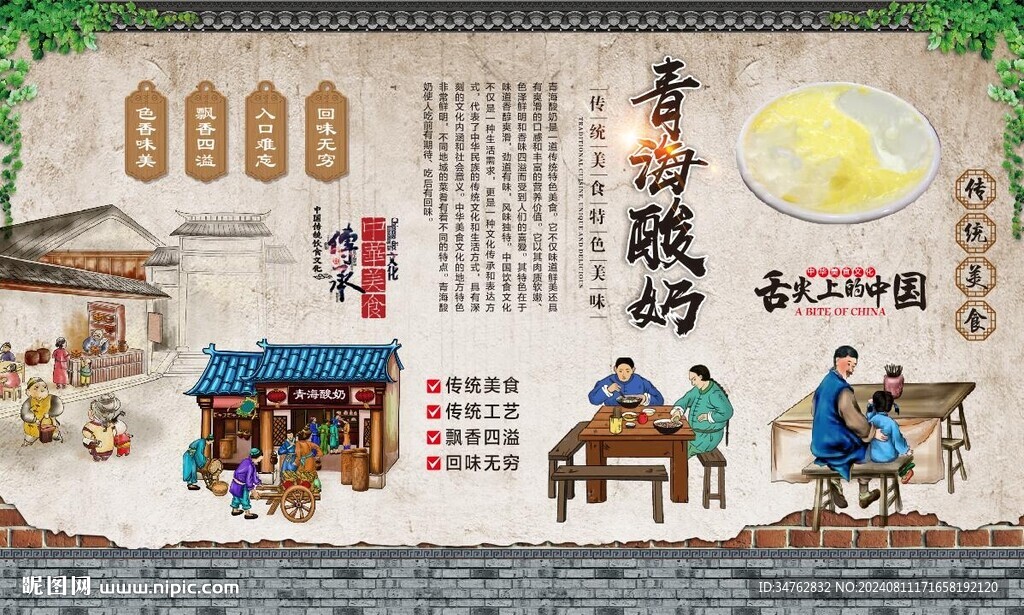 青海酸奶
传统美食特色美味
TRADITIONAL CUISINE, UNIQUE AND DELICIOUS
青海酸奶是一道传统特色美食。它不仅味道鲜美还具
有爽滑的口感和丰富的营养价值。它以其肉质软嫩、
色泽鲜明和香味四溢而受到人们的喜爱。其特色在于
味道香醇爽滑，劲道有味，风味独特。中国饮食文化
不仅是一种生活需求，更是一种文化传承和表达方
式，代表了中华民族的传统文化和生活方式，具有深
刻的文化内涵和社会意义。中华美食文化的地方特色
非常鲜明，不同地域的菜肴有着不同的特点。青海酸
奶使人吃前有期待、吃后有回味。
回味无穷
入口难忘
飘香四溢
色香味美
中華美食
文化
傳承
中国传统饮食文化
青海酸奶
传统美食
传统工艺
飘香四溢
回味无穷
中华美食文化
舌尖上的中国
A BITE OF CHINA
传统美食
昵图网 www.nipic.com
ID:34762832 NO:20240811171658192120